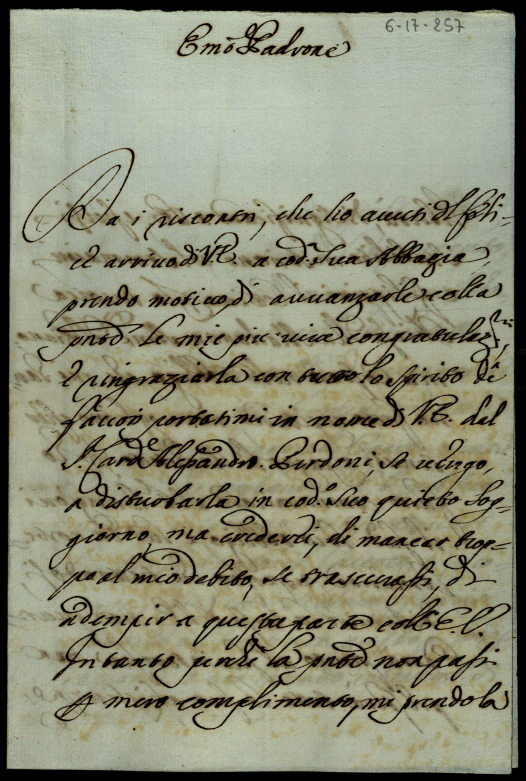 6-17-257
Emō Padrone
Da i riscontri, che hò avuti del feli-
ce arrivo di V.E. a cod.a sua Abbazia,
prendo motivo, di avvanzarle colla
pnte le mie più vive congratulaz.ni,
e ringraziarla con tutto lo spirito de
favori portatimi in nome di V.E. dal
S.r Card.e Alessandro. Perdoni, se vengo,
a disturbarla in cod.o suo quieto sog-
giorno, ma crederei, di mancar trop-
po al mio debito, se trascurassi, di
adempir a questa parte coll'E.V.
Intanto perche la pnte non passi
p mero complimento, mi prendo la